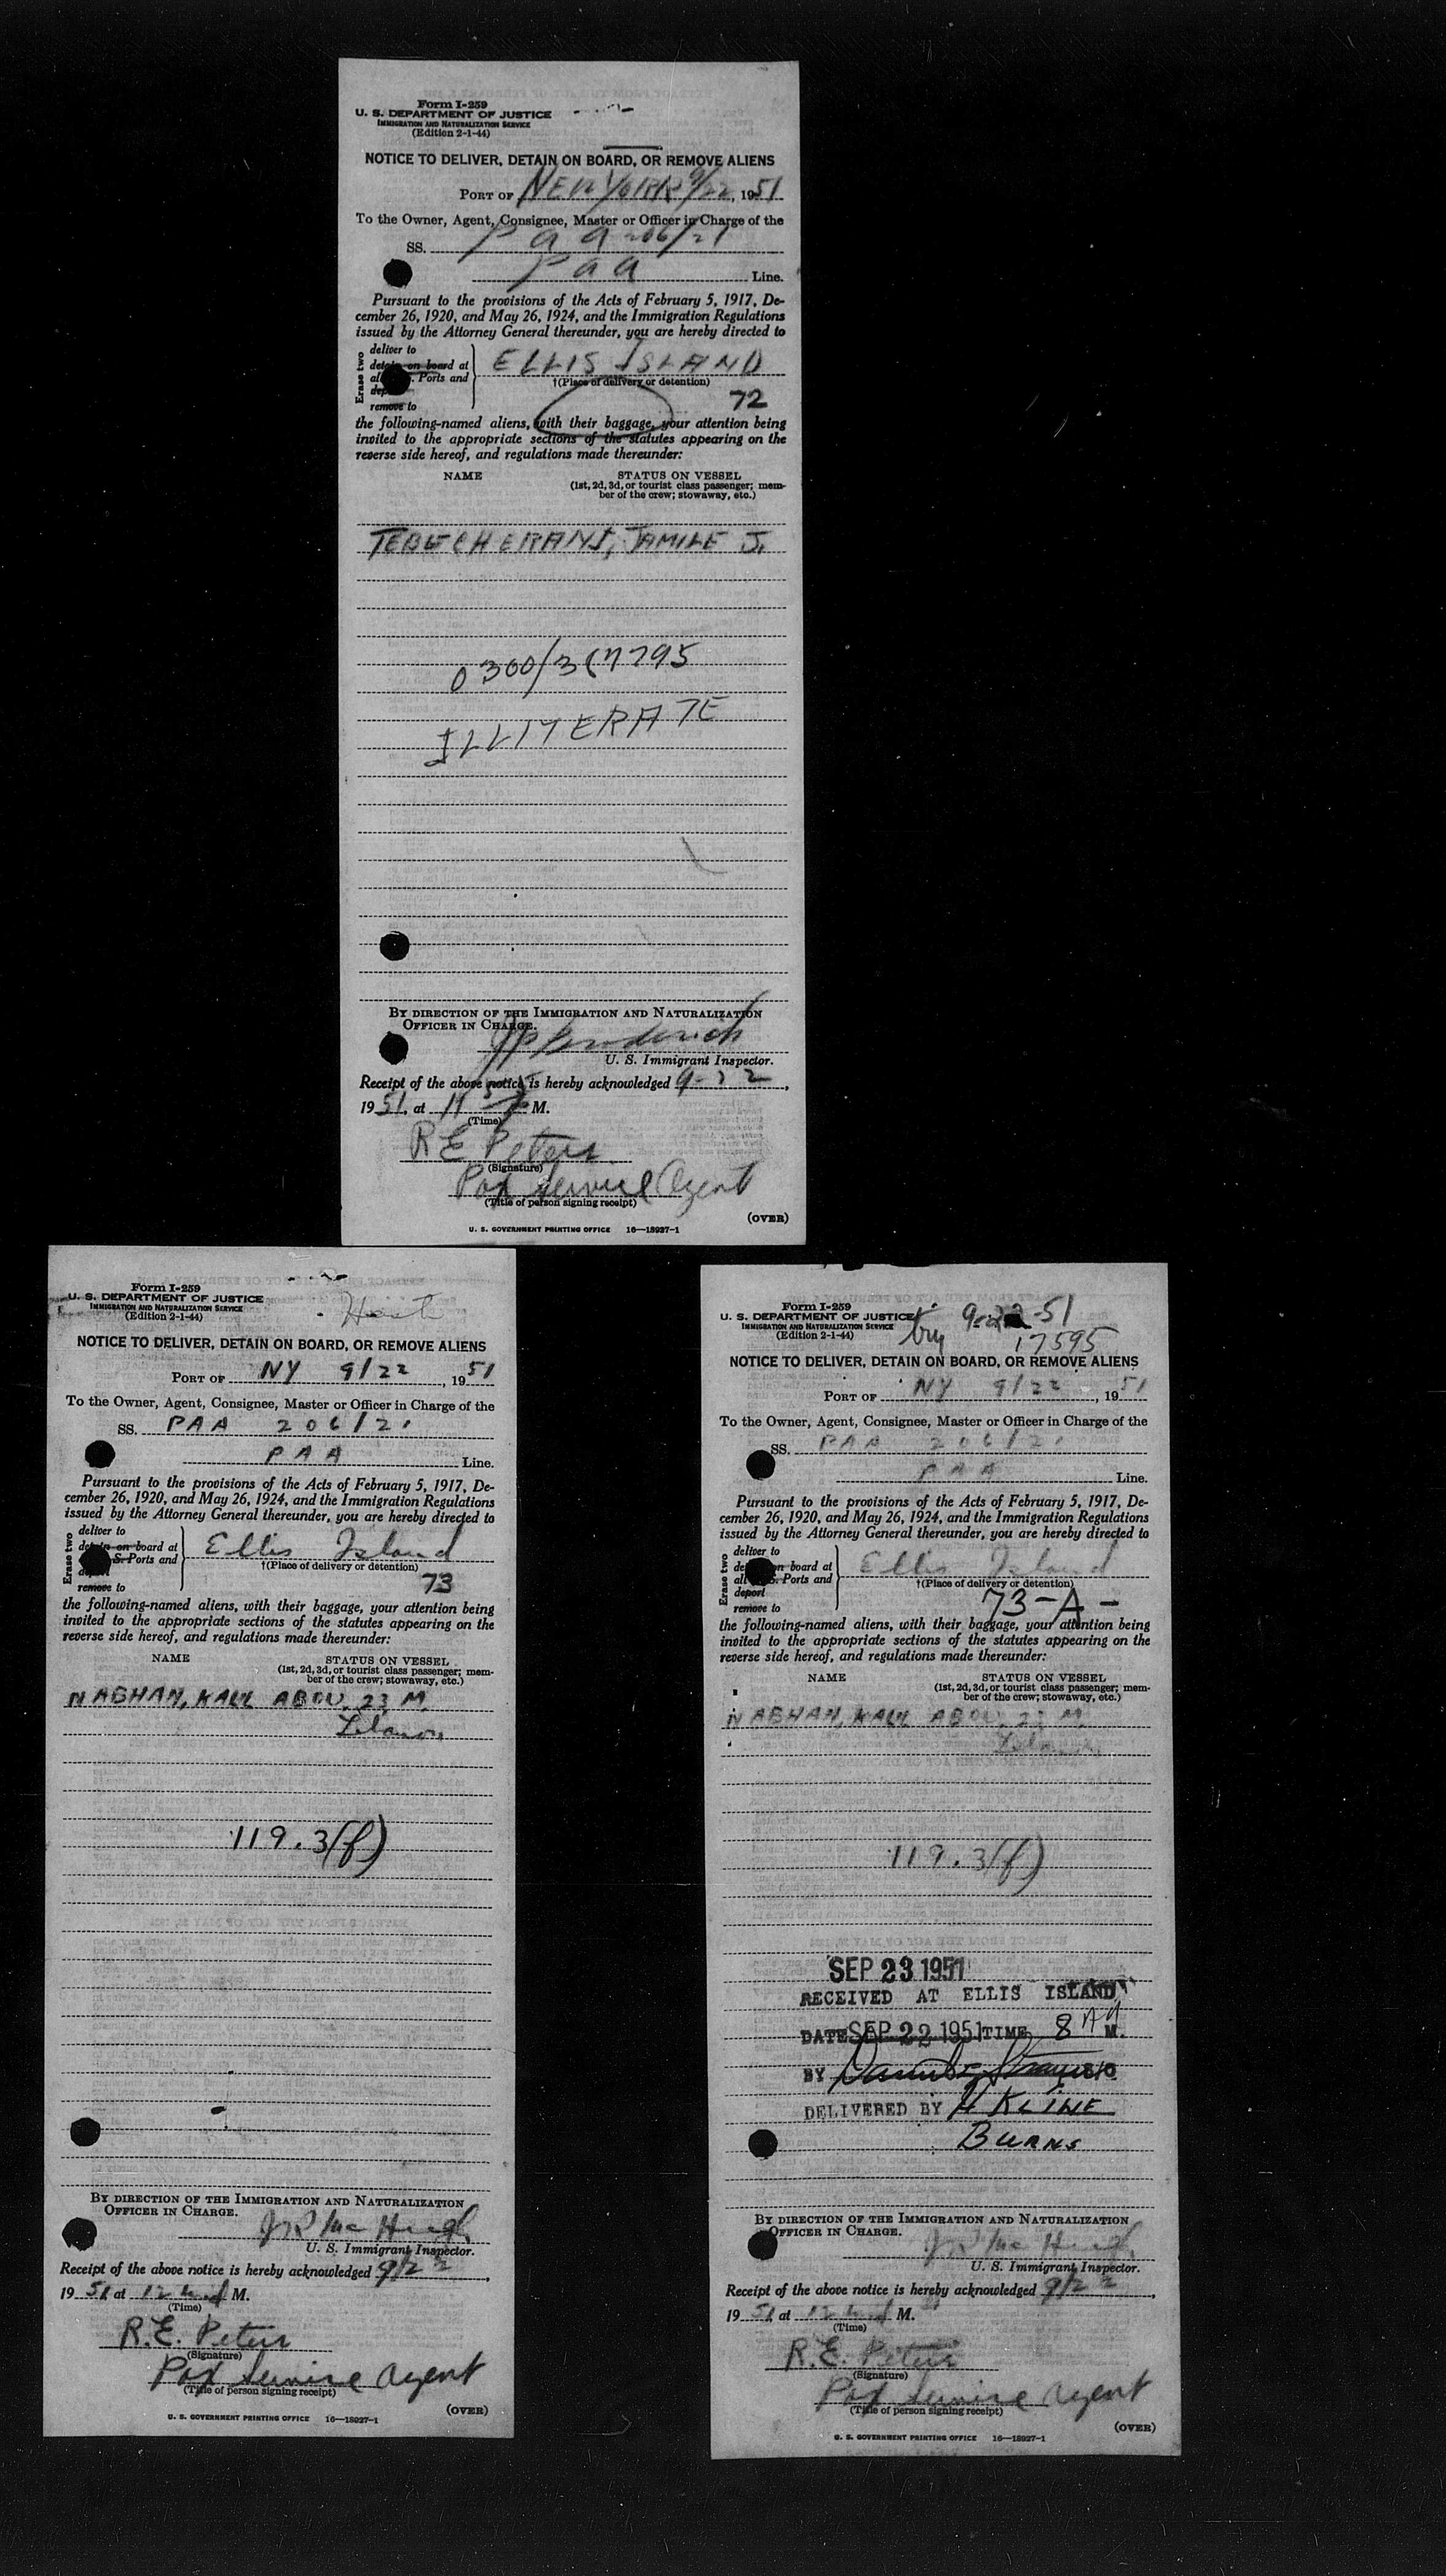 Form I-259
U. S. DEPARTMENT OF JUSTICE
IMMIGRATION AND NATURALIZATION SERVICE
(Edition 2-1-44)
NOTICE TO DELIVER, DETAIN ON BOARD, OR REMOVE ALIENS
PORT OF NEW YORK 9/22, 1951
To the Owner, Agent, Consignee, Master or Officer in Charge of the
SS. Paa 206/21
Paa Line.
Pursuant to the provisions of the Acts of February 5, 1917, De-
cember 26, 1920, and May 26, 1924, and the Immigration Regulations
issued by the Attorney General thereunder, you are hereby directed to
Erase two
deliver to
detain on board at
Ports and
remove to
ELLIS ISLAND
†(Place of delivery or detention)
72
the following-named aliens, with their baggage, your attention being
invited to the appropriate sections of the statutes appearing on the
reverse side hereof, and regulations made thereunder:
NAME STATUS ON VESSEL
(1st, 2d, 3d, or tourist class passenger; mem-
ber of the crew; stowaway, etc.)
JAMILE J.
0300/
ILLITERATE
BY DIRECTION OF THE IMMIGRATION AND NATURALIZATION
OFFICER IN CHARGE.
U. S. Immigrant Inspector.
Receipt of the above notice is hereby acknowledged 9-22,
1951, at M.
(Time)
R E Peters
(Signature)
Service Agent
(Title of person signing receipt)
(OVER)
U. S. GOVERNMENT PRINTING OFFICE 16—18927-1
Form I-259
U. S. DEPARTMENT OF JUSTICE
IMMIGRATION AND NATURALIZATION SERVICE
(Edition 2-1-44)
NOTICE TO DELIVER, DETAIN ON BOARD, OR REMOVE ALIENS
PORT OF NY 9/22, 1951
To the Owner, Agent, Consignee, Master or Officer in Charge of the
SS. PAA 206/21
PAA Line.
Pursuant to the provisions of the Acts of February 5, 1917, De-
cember 26, 1920, and May 26, 1924, and the Immigration Regulations
issued by the Attorney General thereunder, you are hereby directed to
Erase two
deliver to
detain on board at
S. Ports and
remove to
Ellis Island
†(Place of delivery or detention)
73
the following-named aliens, with their baggage, your attention being
invited to the appropriate sections of the statutes appearing on the
reverse side hereof, and regulations made thereunder:
NAME STATUS ON VESSEL
(1st, 2d, 3d, or tourist class passenger; mem-
ber of the crew; stowaway, etc.)
NABHAN, KALIL ABOU 23 M.
Lebanon
119.3(f)
BY DIRECTION OF THE IMMIGRATION AND NATURALIZATION
OFFICER IN CHARGE.
Mc Hugh
U. S. Immigrant Inspector.
Receipt of the above notice is hereby acknowledged 9/22,
1951 at 12 M.
(Time)
R.E. Peters
(Signature)
Service Agent
(Title of person signing receipt)
(OVER)
U. S. GOVERNMENT PRINTING OFFICE 16—18927-1
Form I-259
U. S. DEPARTMENT OF JUSTICE
IMMIGRATION AND NATURALIZATION SERVICE
(Edition 2-1-44)
9-22-51
17595
NOTICE TO DELIVER, DETAIN ON BOARD, OR REMOVE ALIENS
PORT OF NY 9/22, 1951
To the Owner, Agent, Consignee, Master or Officer in Charge of the
SS. PAA 206/21
PAA Line.
Pursuant to the provisions of the Acts of February 5, 1917, De-
cember 26, 1920, and May 26, 1924, and the Immigration Regulations
issued by the Attorney General thereunder, you are hereby directed to
Erase two
deliver to
on board at
all S. Ports and
deport
remove to
Ellis Island
†(Place of delivery or detention)
73-A-
the following-named aliens, with their baggage, your attention being
invited to the appropriate sections of the statutes appearing on the
reverse side hereof, and regulations made thereunder:
NAME STATUS ON VESSEL
(1st, 2d, 3d, or tourist class passenger; mem-
ber of the crew; stowaway, etc.)
NABHAN, KALIL ABOU 23 M.
Lebanon
119.3(f)
SEP 23 1951
RECEIVED AT ELLIS ISLAND
DATE SEP 22 1951 TIME 8 AM M.
BY
DELIVERED BY H KLINE
BURNS
BY DIRECTION OF THE IMMIGRATION AND NATURALIZATION
OFFICER IN CHARGE.
Mc Hugh
U. S. Immigrant Inspector.
Receipt of the above notice is hereby acknowledged 9/22,
1951, at 12 M.
(Time)
R.E. Peters
(Signature)
Service Agent
(Title of person signing receipt)
(OVER)
U. S. GOVERNMENT PRINTING OFFICE 16—18927-1